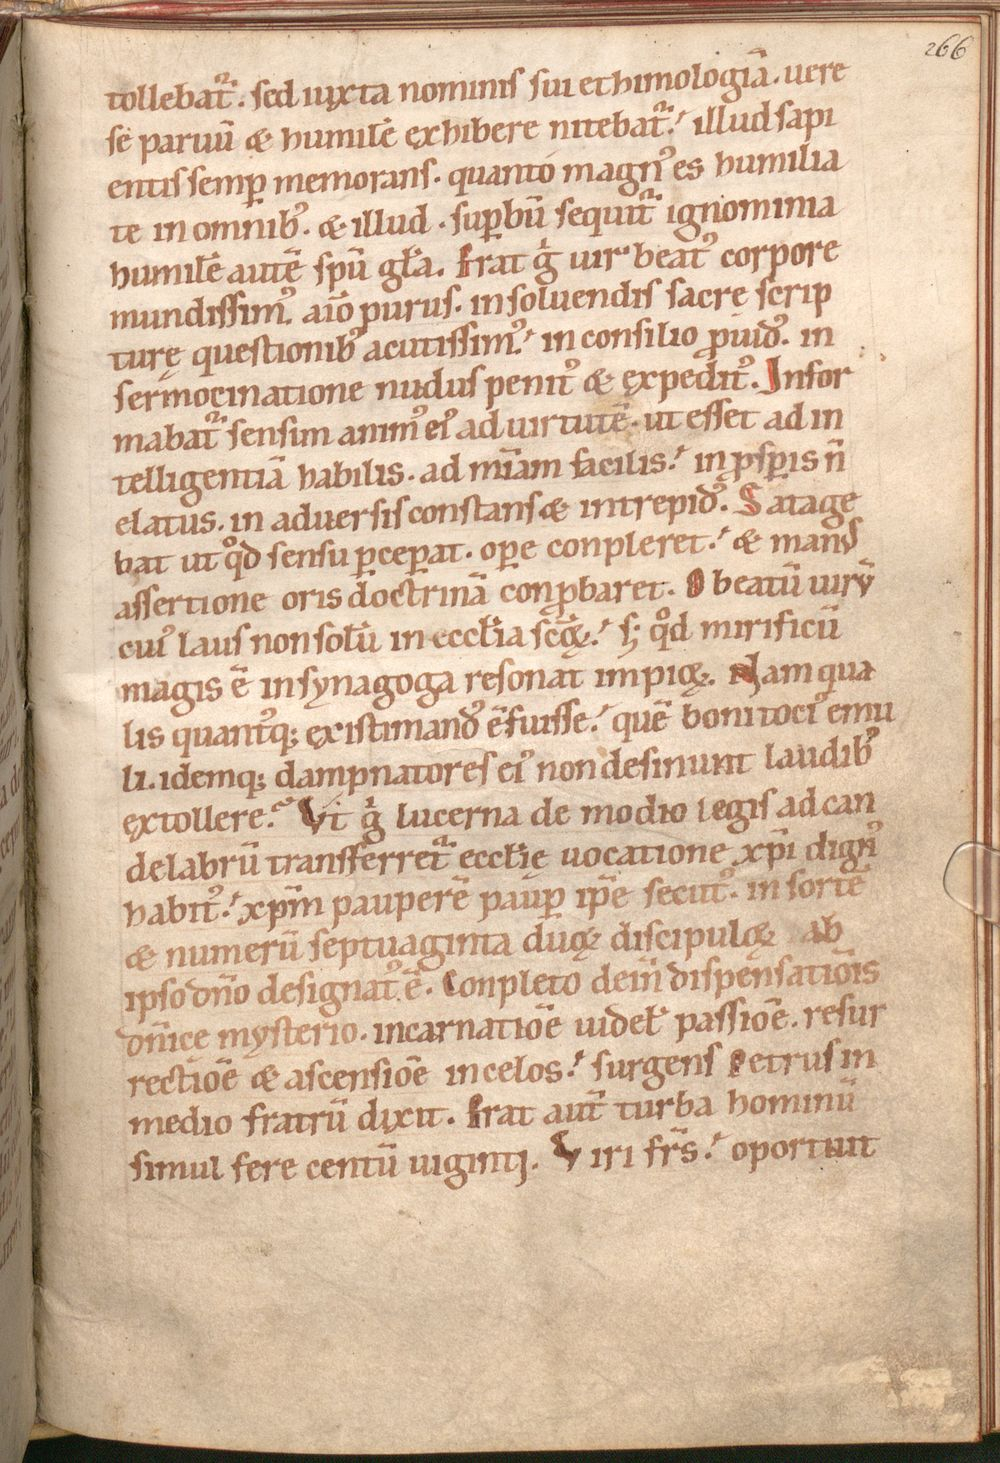 266
tollebat᷑. sed iuxta nominis sui ethimologiā. uere
sē paruū & humilē exhibere nitebat᷑. illud sapi
entis semꝑ memorans. quanto magnꝰ es humilia
te in omnibꝰ. & illud. suꝑbū sequit᷑ ignominia
humilē autē spū gła. Erat gͥ uir beatꝰ corpore
mundissimꝰ. aīo purus. in soluendis sacrę scrip
turę questionibꝰ acutissimꝰ. in consilio ꝓuidꝰ. in
sermocinatione nudus penitꝰ & expeditꝰ. Infor
mabat᷑ sensim animꝰ eiꝰ ad uirtutē. ut esset ad in
telligentiā habilis. ad mīam facilis. in ꝓsꝑis n̄
elatus. in aduersis constans & intrepidꝰ. Satage
bat ut qͦd sensu ꝑceꝑat. oꝑe conpleret. & manꝰ
assertione oris doctrinā conꝓbaret. O beatū uirū
cuiꝰ laus non solū in ecclia scōꝝ. s; qͦd mirificū
magis ē in synagoga resonat impioꝝ. Nam qua
lis quantꝰq; existimandꝰ ē fuisse. quē boni tociꝰ emu
li. idemq; dampnatores eiꝰ non desinunt laudibꝰ
extollere. Vt gͥ lucerna de modio legis ad can
delabrū transferret᷑ ecclię uocatione xp̄i dignꝰ
habitꝰ. xp̄m pauperē pauꝑ ip̄e secutꝰ. in sortē
& numerū septuaginta duoꝝ discipuloꝝ ab
ipso dn̄o designatꝰ ē. Conpleto dein̄ dispensatiōis
dn̄icę mysterio. incarnatiōē uidelꝫ passiōē. resur
rectiōē & ascensiōē in celos. surgens Petrus in
medio fratrū dixit. Erat aut̄ turba hominū
simul fere centū uiginti. Viri fr̄s. oportuit